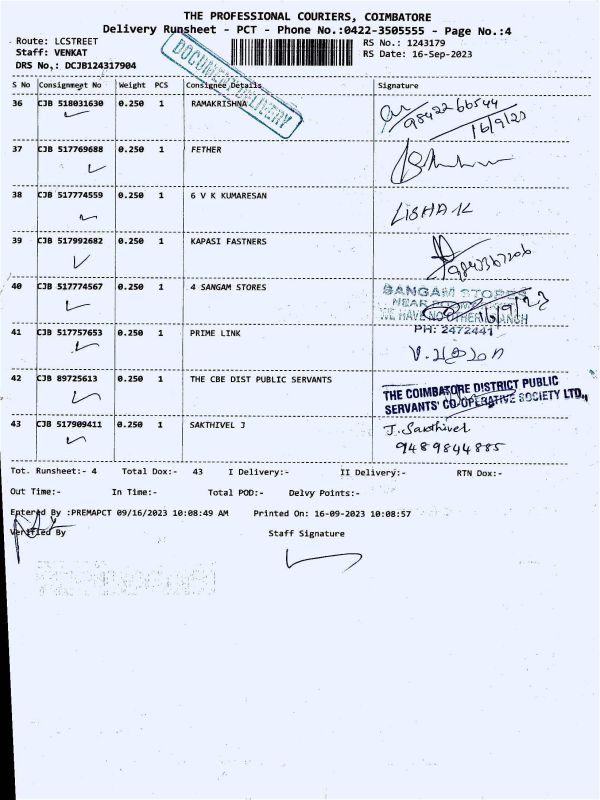 THE PROFESSIONAL COURIERS, COIMBATORE
Delivery Runsheet - PCT - Phone No.:0422-3505555 - Page No.:4
Route: LCSTREET RS No.: 1243179
Staff: VENKAT RS Date: 16-Sep-2023
DRS No,: DCJB124317904
DOCUMENT DELIVERY
S No Consignment No Weight PCS Consignee Details Signature
36 CJB 518031630 0.250 1 RAMAKRISHNA 9842266544
16/9/23
37 CJB 517769688 0.250 1 FETHER
38 CJB 517774559 0.250 1 6 V K KUMARESAN
39 CJB 517992682 0.250 1 KAPASI FASTNERS
40 CJB 517774567 0.250 1 4 SANGAM STORES SANGAM STORES
NEAR
WE HAVE NO OTHER BRANCH 16/9/23
PH: 2472441
41 CJB 517757653 1 0.250 PRIME LINK
42 CJB 89725613 0.250 1 THE CBE DIST PUBLIC SERVANTS THE COIMBATORE DISTRICT PUBLIC
SERVANTS' CO-OPERATIVE SOCIETY LTD.,
43 CJB 517909411 0.250 1 SAKTHIVEL J J. Sakthivel
9489844885
Tot. Runsheet:- 4 Total Dox:- 43 I Delivery:- II Delivery:- RTN Dox:-
Out Time:- In Time:- Total POD:- Delvy Points:-
Entered By :PREMAPCT 09/16/2023 10:08:49 AM Printed On: 16-09-2023 10:08:57
Verified By Staff Signature